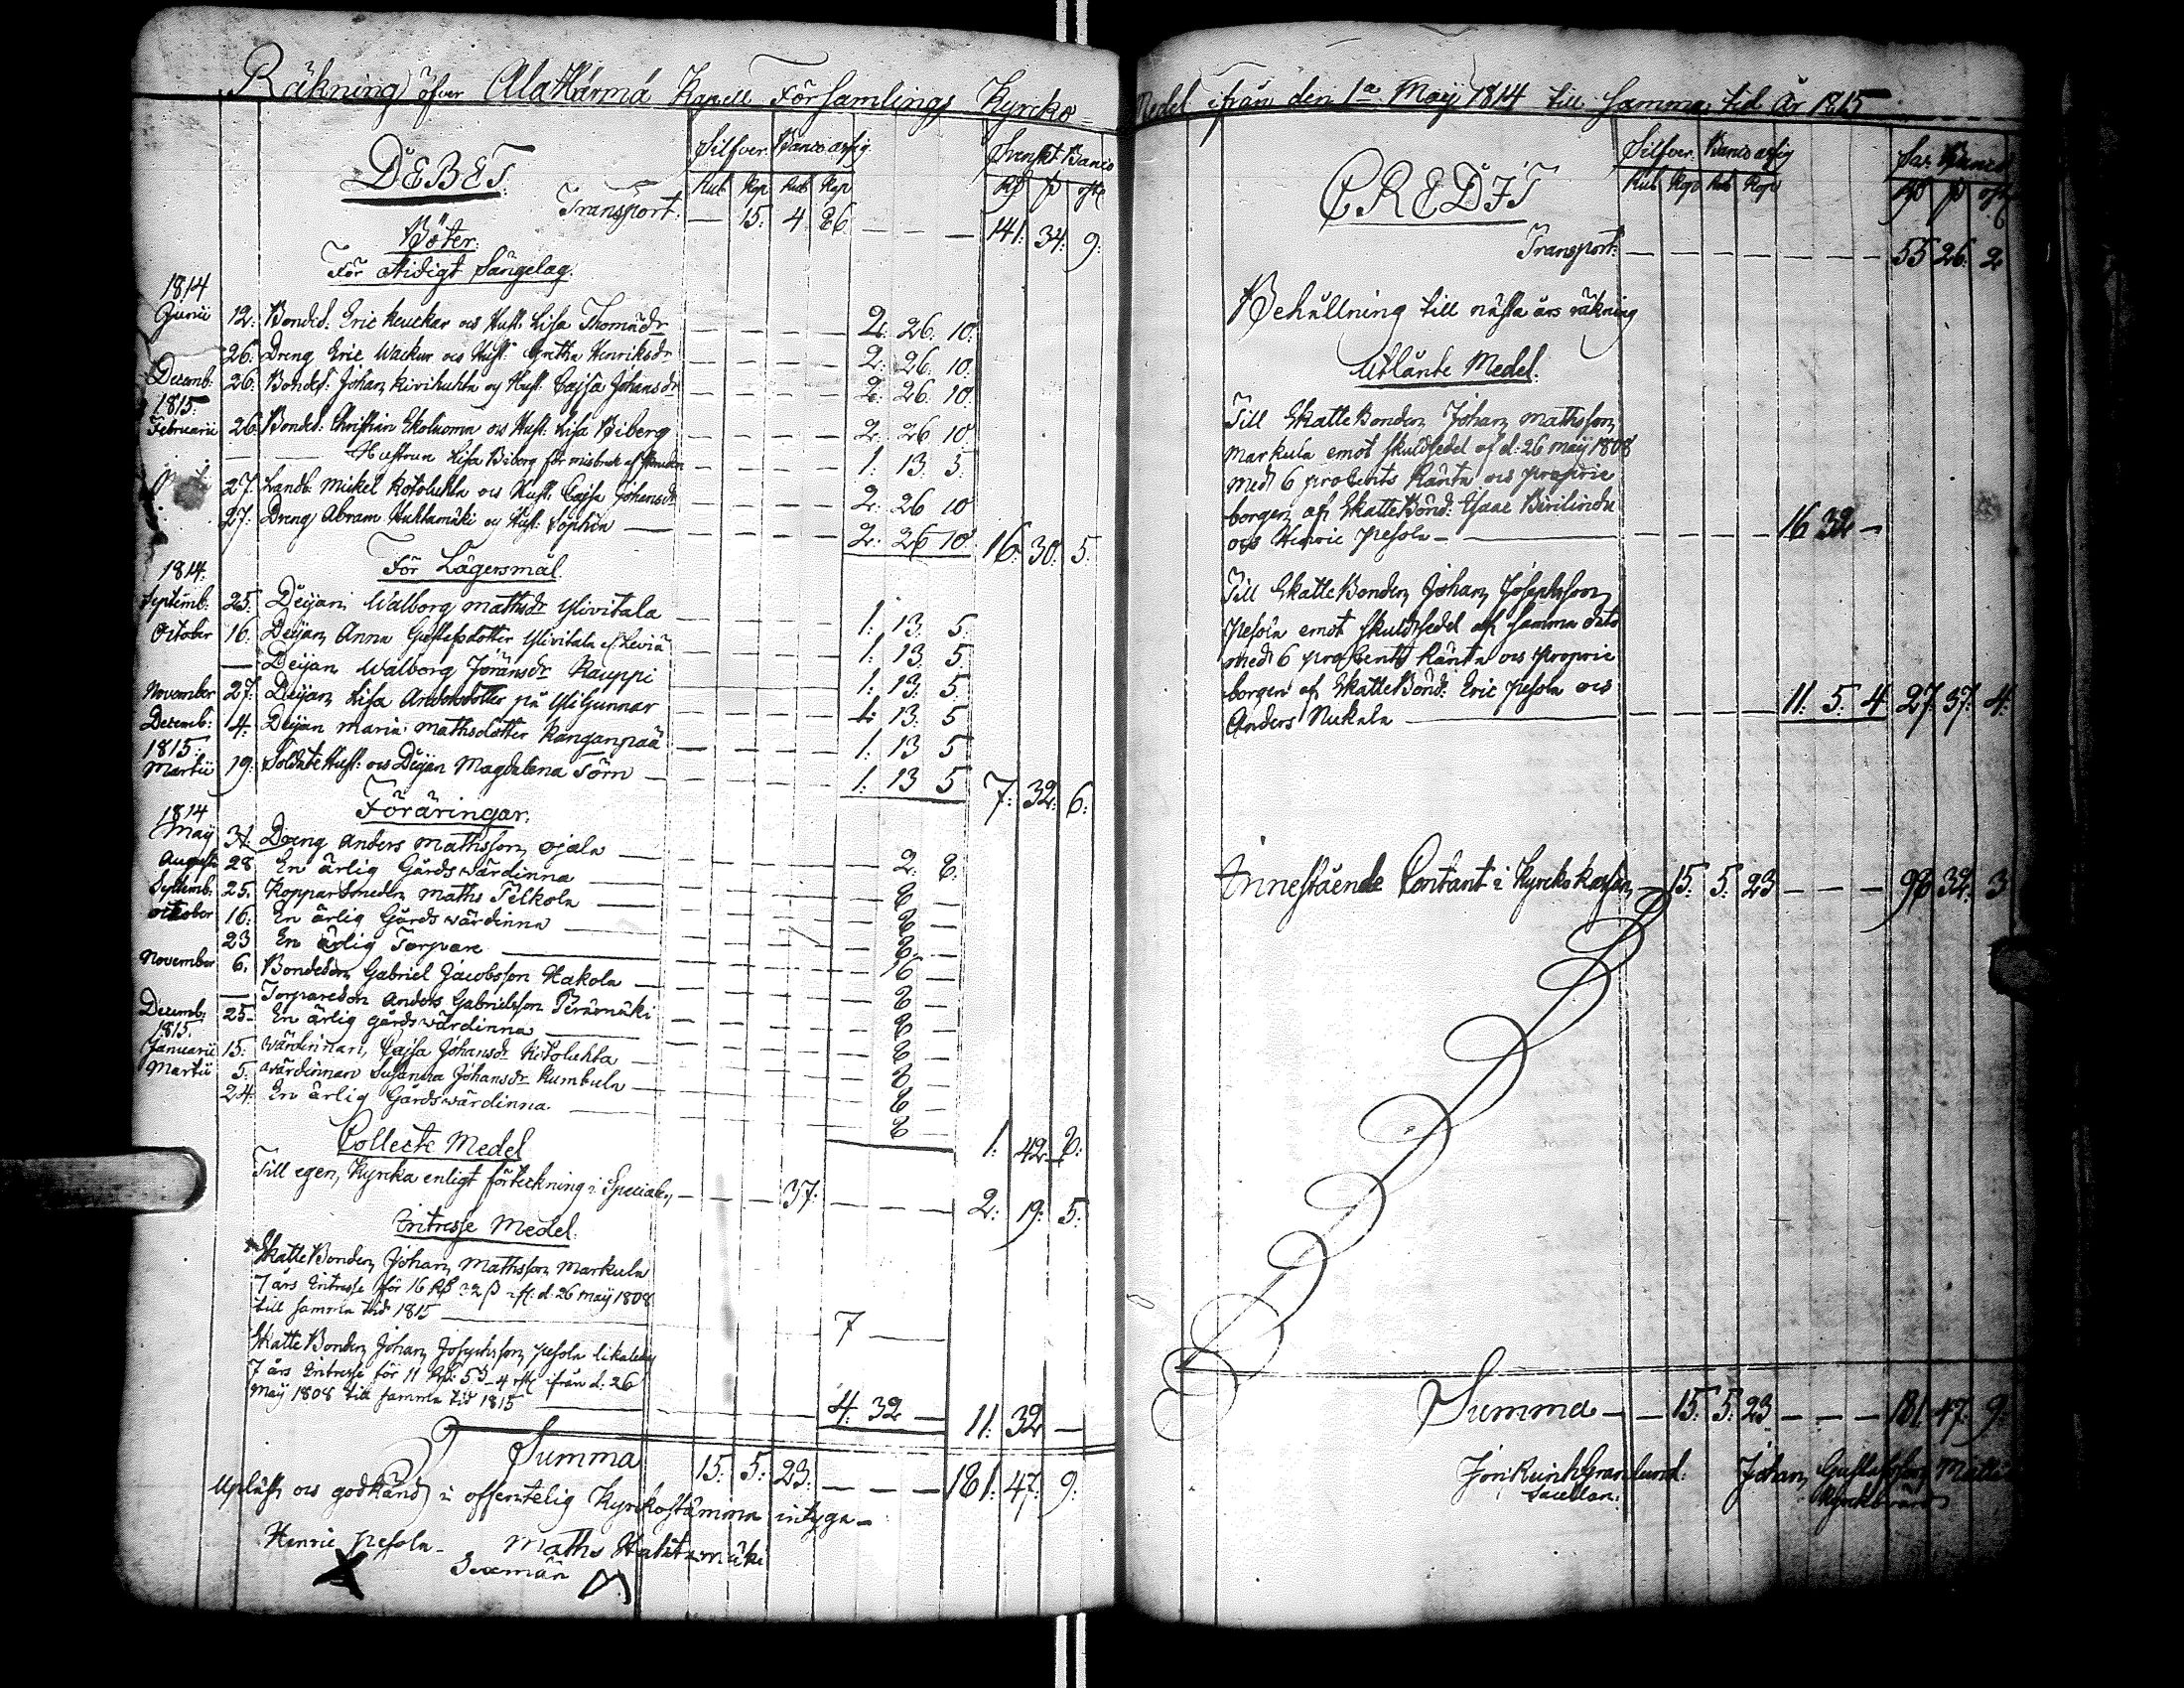 Räkning öfver AlaHärmä Kapell Församlings Kyrcko=
DEBET.
Silfver. Banco assig
Svenskt Banco
Rub Kop Rub Kop
Transport. — 15. 4. 86 — — — 141: 34: 9:
Böter.
För tidigt Sängelag.
1814
Junii 12: Bondes: Eric Keuckar och Hust: Lisa Thomædr — — — — 2: 26: 10:
26. Dreng Eric Wackur och Hust: Gretha Henriksdr — — — — 2: 26. 10.
Decemb: 26. Bondes: Johan Kivihuhta och Hust: Cajsa Johansdr — — — — 2: 26 10
1815:
Februarii 26. Bondes: Christian Ekoluoma och Hust: Lisa Biberg — — — — 2: 26 10
— Hustrun Lisa Biberg för misbruk af — — — — 1: 13. 5.
27. Landb: Mickel Kotoluhta och Hust: Cajsa Johansdr — — — — 2: 26 10
27. Dreng Abram Huhtamäki och Hust: Sophia — — — — — 2: 26 10 16: 30: 5.
För Lägersmål.
1814:
Septemb: 25. Deijan Walborg Mathsdr Ylivitala — — — — 1: 13. 5.
October 16. Deijan Anna Gustafsdotter Ylivitala — — — — 1: 13. 5.
— Deijan Walborg Jöransdr Kauppi — — — — 1: 13: 5
November 27. Deijan Lisa Andersdotter på YliGunnar — — — — 1: 13. 5
Decemb: 4. Deijan Maria Mathsdotter Kanganpää — — — — 1: 13 5
1815:
Martii 19. SoldatsHust: och Deijan Magdalena Törn — — — — 1: 13 5 7: 32: 6:
Föräringar.
1814
Maij 31. Dreng Anders Mathsson Ojala — — — — — 2. 8:
Augusti 28 En ärlig Gårdswärdinna — 8 —
Septemb: 25. Kopparsmeden Maths Pelkola — 8 —
October 16. En ärlig Gårdswärdinna — 8 —
23 En ärlig Torpare — 6 —
November 6. Bondeson Gabriel Jacobsson Hakola — 8 —
— Torpareson Anders Gabrielsson Perämäki — 8 —
Decemb: 25. En ärlig gårdswärdinna — 8 —
1815.
Januarii 15. Wärdinnan Cajsa Johansdr Kotoluhta — 8 —
Martii 5. Wärdinnan Susanna Johansdr Kumbula — 8 —
24. En ärlig Gårdswärdinna — 8 — 1. 42. 8.
Collecte Medel
Till egen Kyrcka enligt förteckning i Specialen — — — 37. — — — 2. 19: 5.
Intresse Medel.
SkatteBonden Johan Mathsson Markula
7 års Intresse för 16 Rß 32 ß d. 26 Maij 1808
till samma tid 1815 — 7 —
SkatteBonden Johan Josephsson Pesola likaledes
7 års Intresse för 11 Rß: 5 ß 4 rst: ifrån d. 26
Maij 1808 till samma tid 1815 — 4. 32 — 11: 32 —
Summa 15: 5: 23: — — — 181: 47: 9:
Upläst och godkänd i offentelig Kyrkostämma intyga —
Henric Pesola — Maths Hahtamäki
Sexmän
Medel ifrån den 1a Maij 1814 till samma tid År 1815
CREDIT
Silfver. Banco assig
Banco
Rub Kop Rub Kop
Transport: — — — — — — — 55 26: 2
Behållning till nästa års räkning
Utlånte Medel.
Till SkatteBonden Johan Mathsson
Markula emot skuldsedel af d: 26 Maij 1808
med 6 procents Ränta och proprie
borgen af SkatteBönd: Isaac
och Henric Pesola — — — — — 16 32 —
Till SkatteBonden Johan Josephsson
Pesola emot skuldsedel af samma dato
med 6 procents Ränta och proprie
borgen af SkatteBönd: Eric Pesola och
Anders Nukala — — — — — 11: 5: 4 27: 37: 4:
Innestående Contant i Kyrckokassan — 15: 5: 23 — — — 98 32: 3
Summa — — 15: 5: 23 — — — 181: 47: 9:
Granlund. Johan Gustafsson
Sacellan. Kyrckowärd